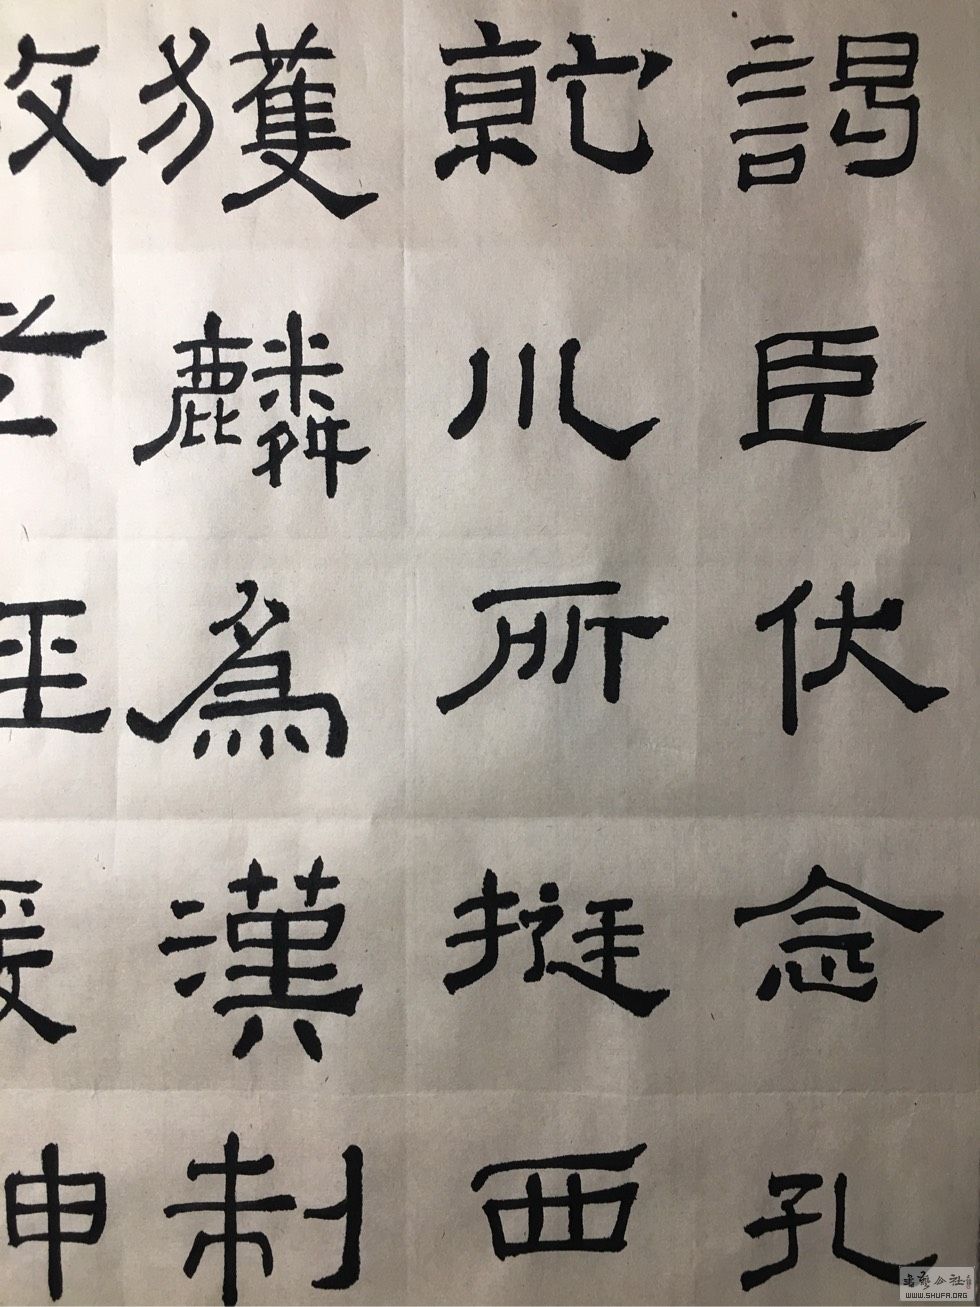 謁臣伏念孔
乾川所挺西
獲麟為漢制
书艺公社
WWW.SHUFA.ORG